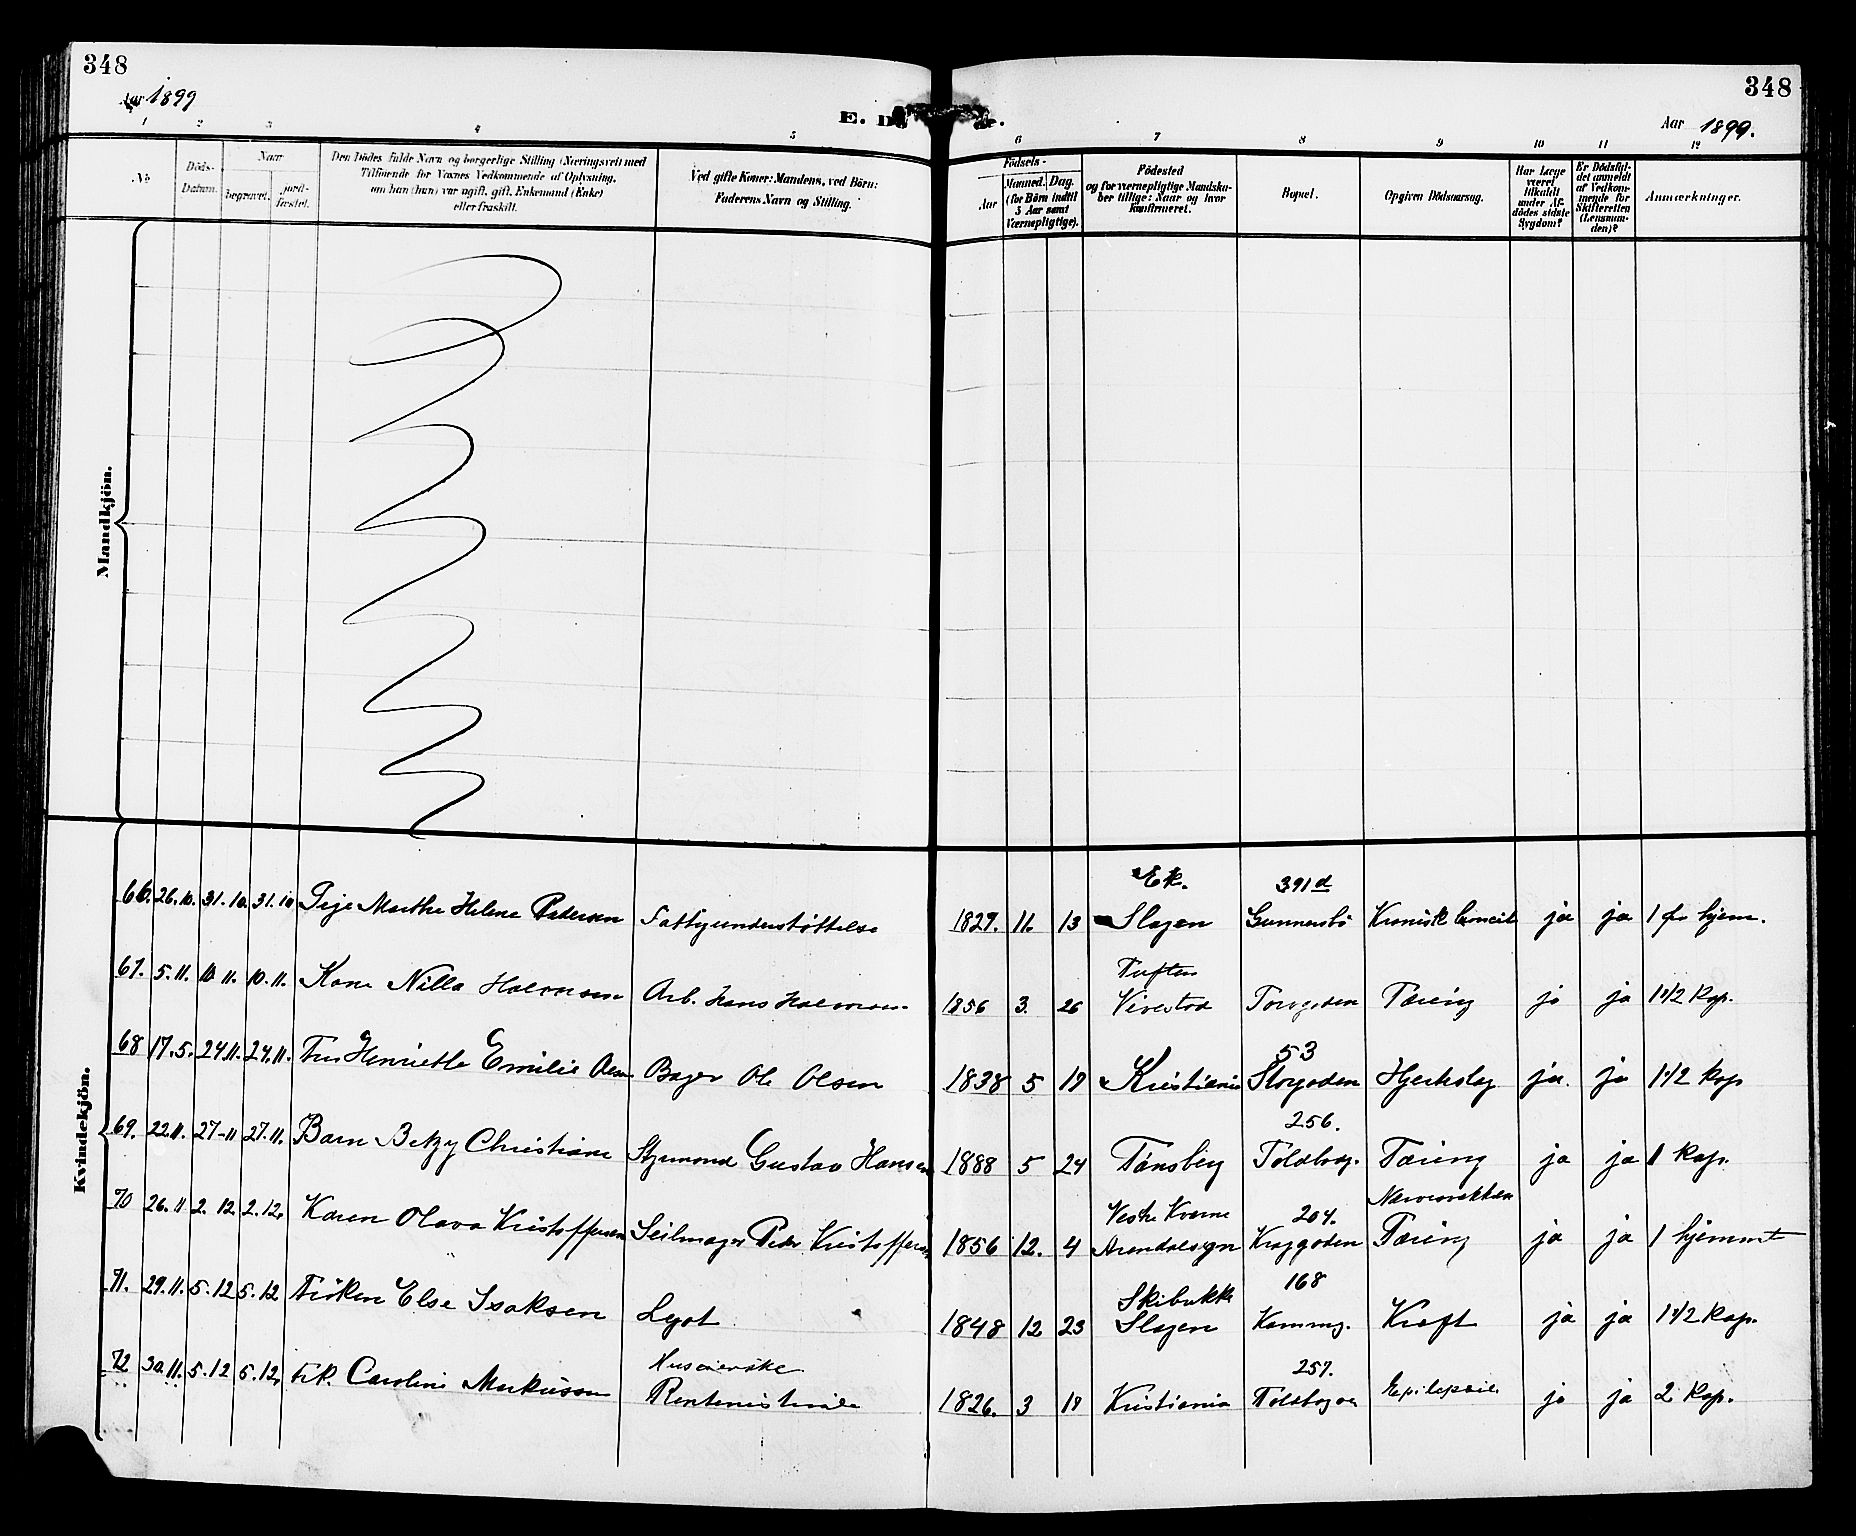 348
Aar 1899
348
Aar 1899.
1 2 3 4 5 6 7 8 9 10 11 12
No
Döds-Datum.
Naar
begravet.
jord-fæstet.
Den Dödes fulde Navn og borgerlige Stilling (Næringsvei) med
Tilföiende for Voxnes Vedkommende af Oplysning,
om han (hun) var ugift, gift, Enkemand (Enke)
eller fraskilt.
Ved gifte Koner: Mandens, ved Börn:
Faderens Navn og Stilling.
Födsels-
Aar
Maaned. Dag.
(for Börn indtil
5 Aar samt
Værnepligtige).
Födested
og for værnepligtige Mandska-
ber tillige: Naar og hvor
Konfirmeret.
Bopæl.
Opgiven Dödsaarsag.
Har Læge
været
tilkaldt
under Af-
dödes sidste
Sygdom?
Er Dödsfal-
det anmeldt
af Vedkom-
mende for
Skifteretten
(Lensman-
den)?
Anmærkninger.
Mandkjön.
Kvindekjön.
Ek. 391 d
66. 26.10. 31.10. 31.10 Pige Marthe Helene Pedersen Fattigunderstøttelse 1829. 11. 13 Slagen Gunnersbö Kronisk ja ja 1 hjem.
67. 5.11. 10.11. 10.11. Kone Nilla Halvorsen Arb. Hans Halvorsen 1856 3. 26 Vivestad Torvgaden Tæring ja ja 1 1/2 Kap.
53
68 17.5. 24.11. 24.11. Fru Henriette Emilie Olsen Bager Ole Olsen 1838 5 19 Kristiania Storgaden Hjerteslag ja. ja 1 1/2 Kap
256.
69. 22.11. 27-11 27.11. Barn Betzy Christiane Styrmand Gustav Hansen 1888 5 24 Tønsberg Toldbodg. Tæring ja ja 1 Kap.
Vestre 204.
70 26.11 2.12. 2.12. Karen Olava Kristoffersen Seilmager Peder Kristoffersen 1856 12. 4 Arendalsegn Kraggaden Tæring ja ja 1 hjemmet
Skibakke 168
71. 29.11. 5.12 5.12 Frøken Else Isaksen Legat 1848 12 23 Slagen Kammg. Kræft ja ja 1 1/2 Kap.
Huseierske 257.
72 30.11. 5.12 5.12. Frk. Caroline Markusson 1826. 3 19 Kristiania Toldbogaden Epilepsie ja ja 2 Kap.